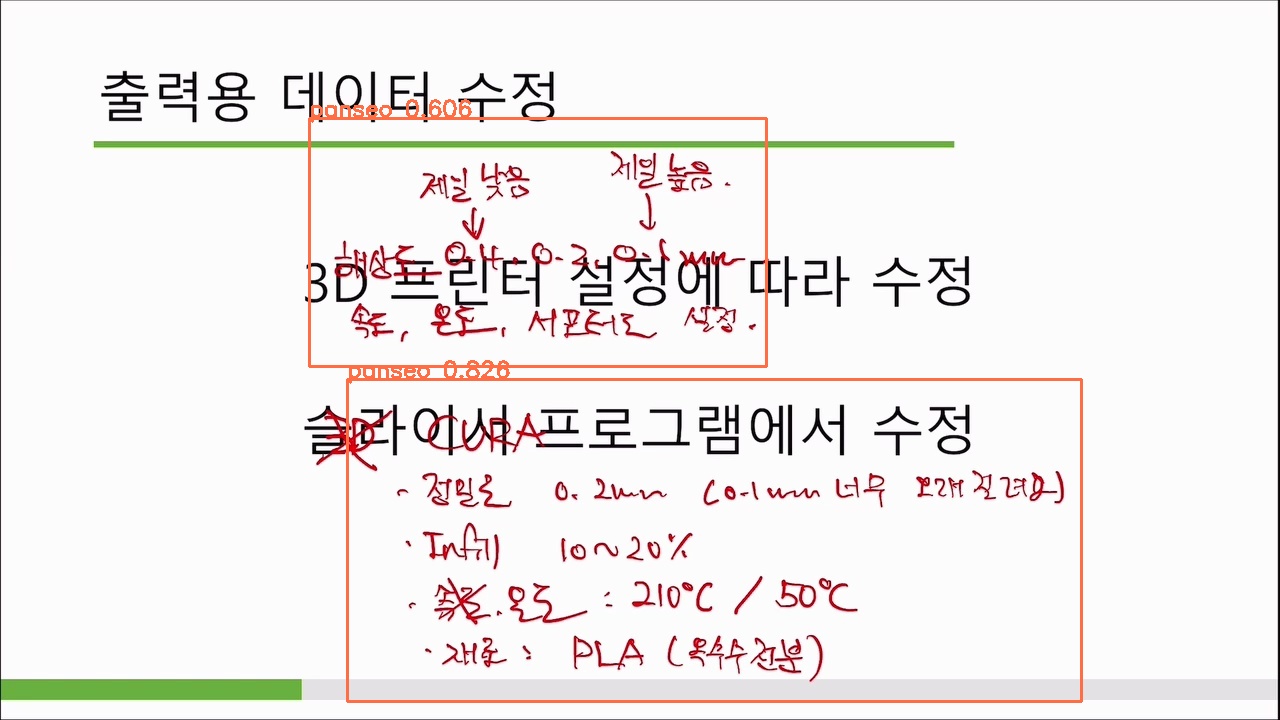 출력용 데이터 수정
panseo 0.606
제일 낮음 제일 높음.
해상도 0.4, 0.2, 0.1mm
3D 프린터 설정에 따라 수정
속도, 온도, 서포터도 설정.
panseo 0.826
슬라이서 프로그램에서 수정
3D CURA
· 정밀도 0.2mm (0.1mm 너무 오래걸려요)
· Infill 10~20%
· 속도, 온도 : 210°C / 50°C
· 재료 : PLA (옥수수전분)